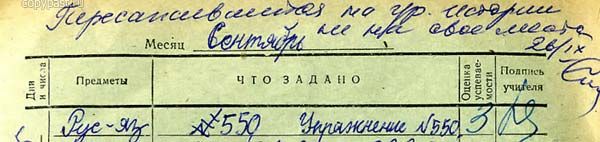 copypast.ru
Пересаживается на ур. истории
не на свое место
Месяц Сентябрь 26/IX
Дни и числа Предметы ЧТО ЗАДАНО Оценка успевае-мости Подпись учителя
Рус-яз №550 Упражнение №550 3